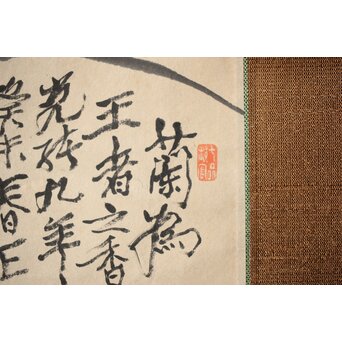 蘭為
王者之香
光緒九年
癸未春